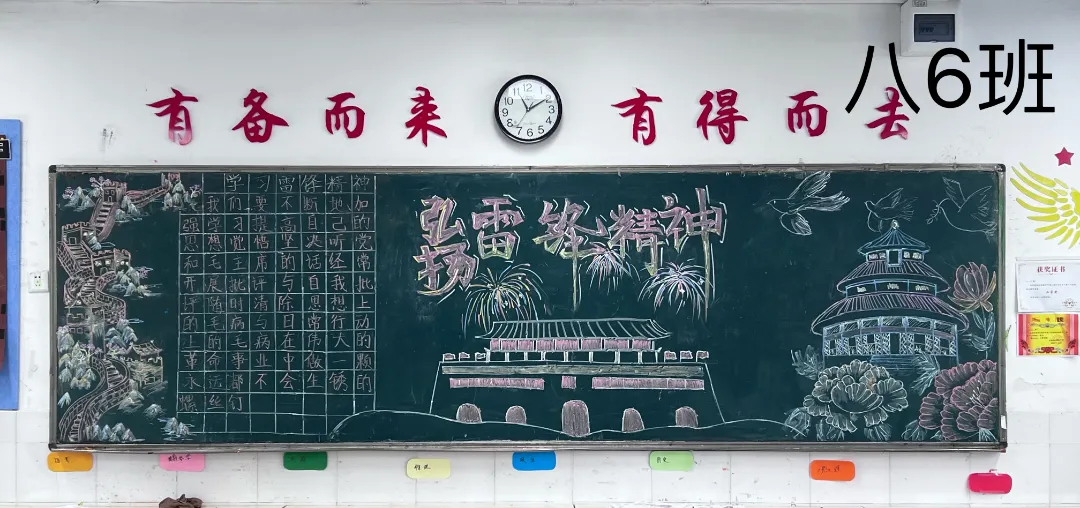 八6班
有备而来 有得而去
学习雷锋精神
我们要不断地加
强学习提高自己的
思想觉悟坚决听党
和毛主席的话经常
开展批评与自我批
评随时清除思想上
的毛病与日常行动
上的毛病在伟大的
革命事业中做 颗
永远都不会生锈的
螺丝钉
弘扬雷锋精神
获奖证书